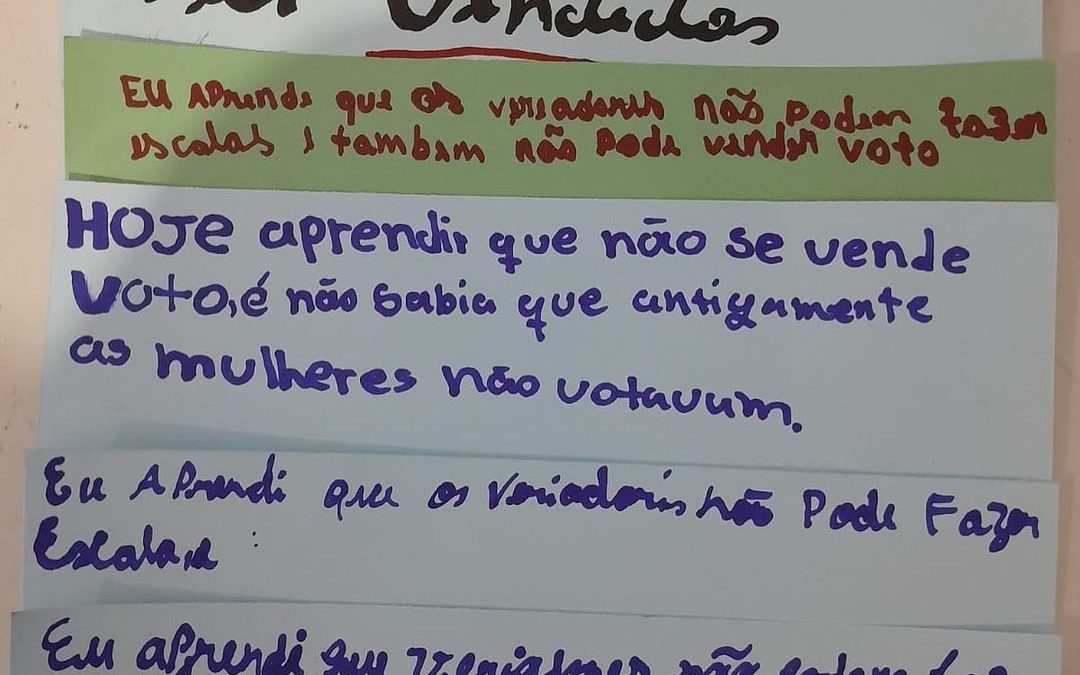 ser vendidos
EU APrende que os veriadores não Podem fazer
escolas e tambem não Pode vender voto
HOJe aprendir que não se vende
voto, é não sabia que antigamente
as mulheres não votavam.
Eu APrendi que os veriadoris não Pode Fazer
Escola,e
Eu aPrendi que veriadores não